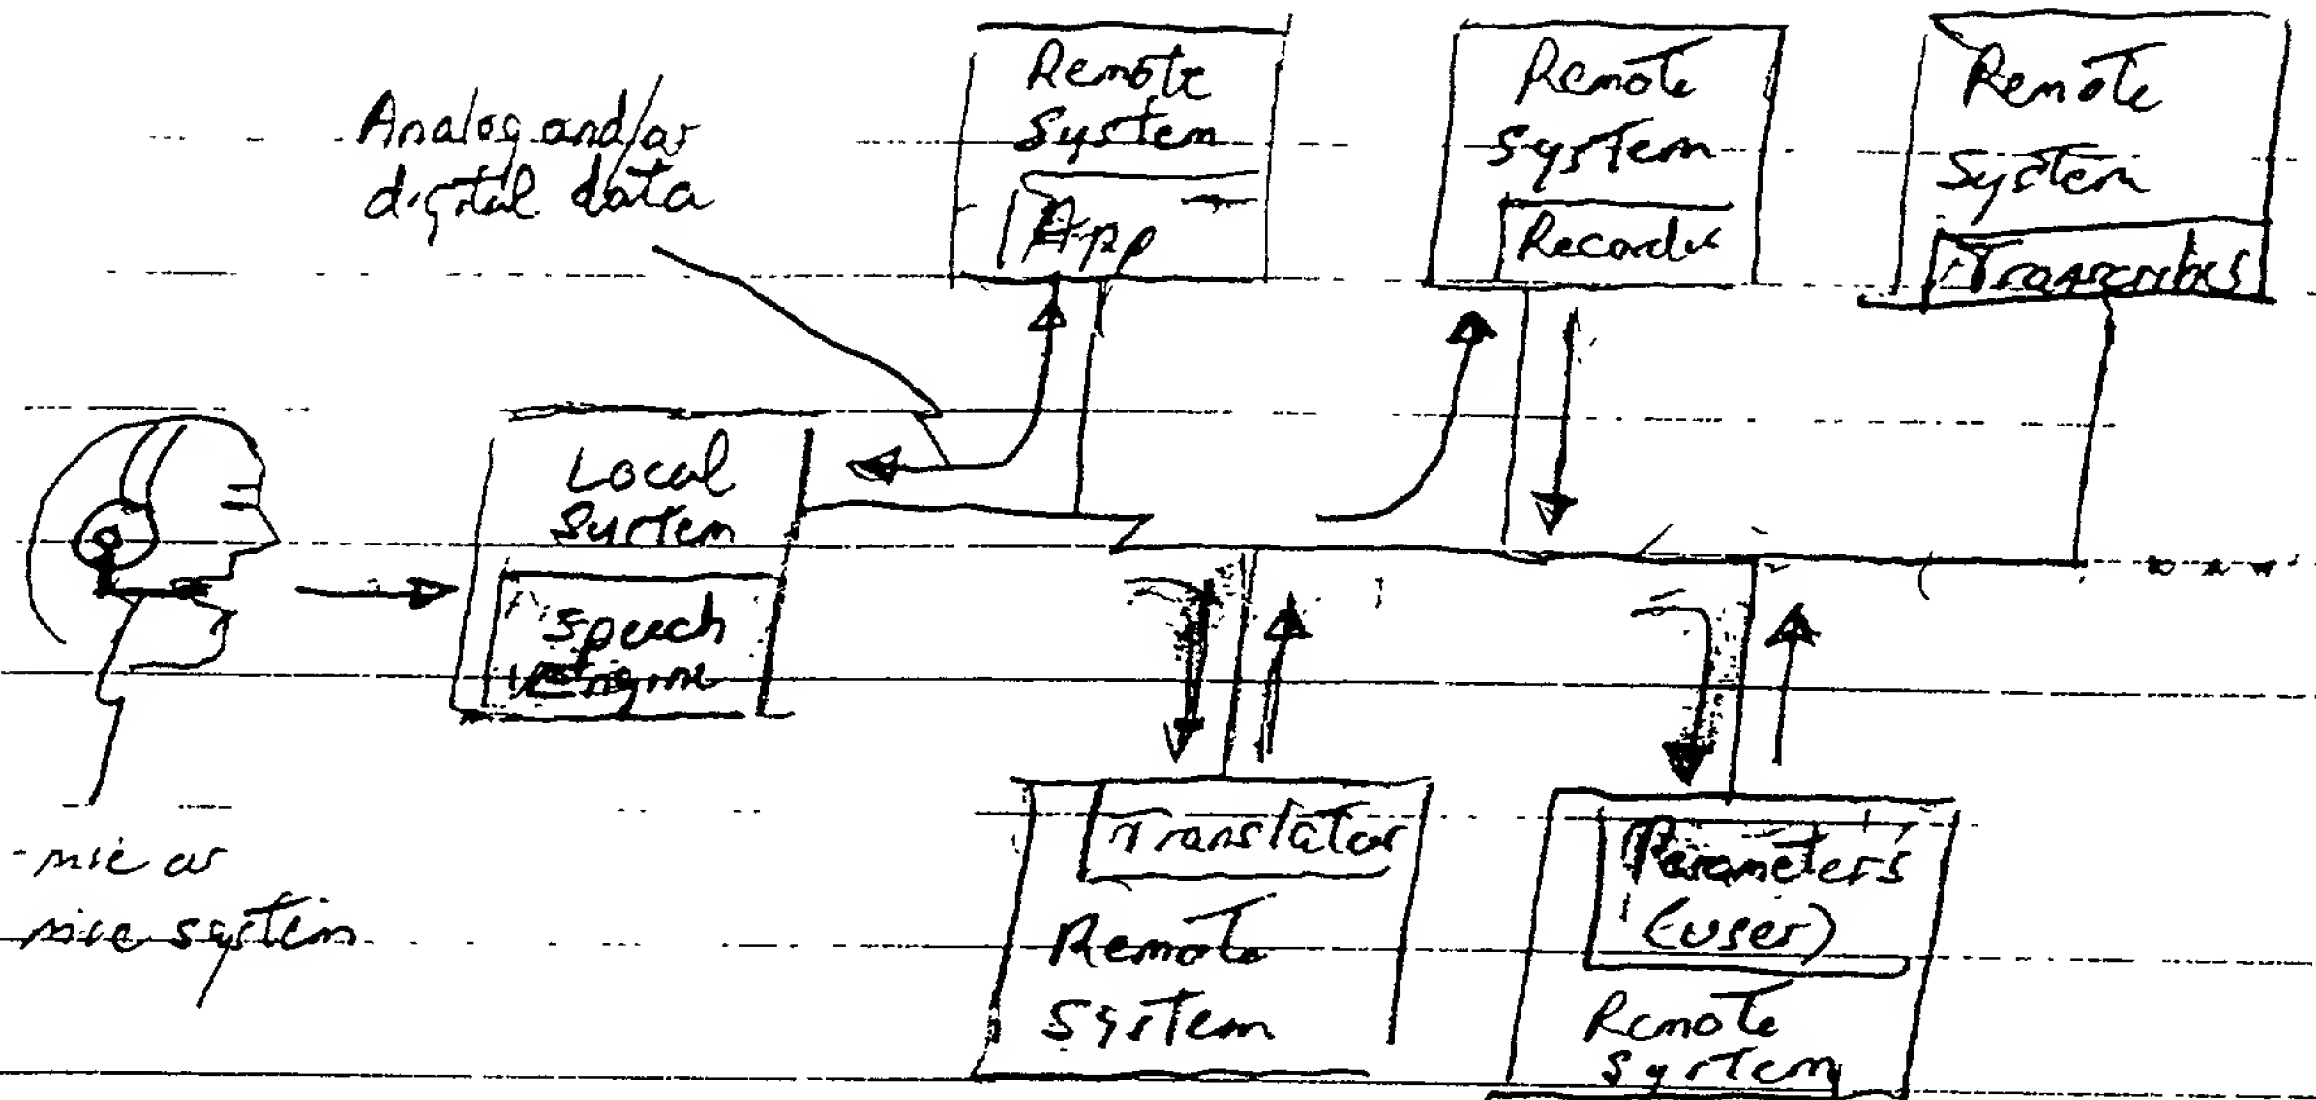 Analog and/or
digital data
Remote
System
App
Remote
System
Recorder
Remote
System
Transcribes
Local
System
Speech
Engine
- mic or
mic system
Translator
Remote
System
Parameters
(user)
Remote
System